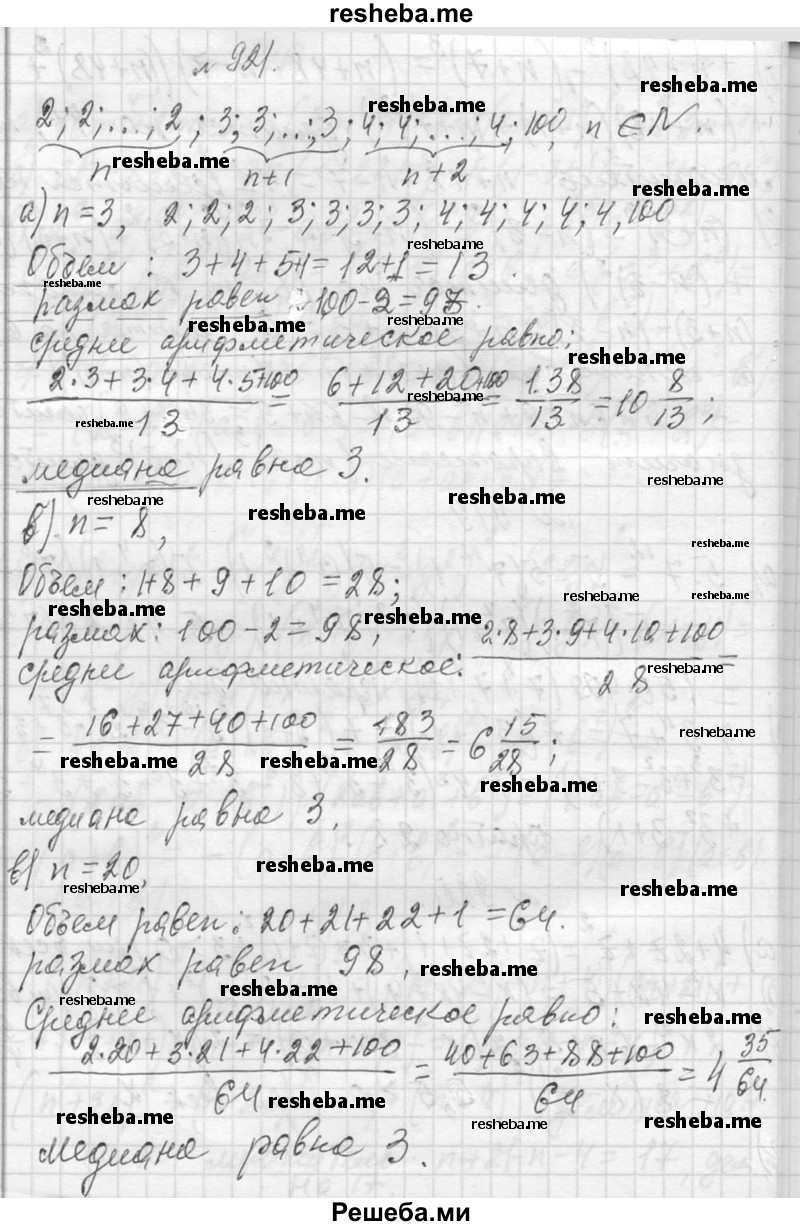 resheba.me
№ 921.
2; 2; ...; 2; 3; 3; ...; 3; 4; 4; ...; 4; 100, n ∈ N.
n n+1 n+2
а) n = 3, 2; 2; 2; 3; 3; 3; 3; 4; 4; 4; 4; 4, 100
Объем : 3 + 4 + 5+1 = 12 + 1 = 13 .
размах равен : 100 - 2 = 98.
среднее арифметическое равно:
(2·3 + 3·4 + 4·5+100)/13 = (6 + 12 + 20+100)/13 = 138/13 = 10 8/13 ;
медиана равна 3.
б) n = 8,
Объем : 1+8 + 9 + 10 = 28;
размах : 100 - 2 = 98,
среднее арифметическое: (2·8 + 3·9 + 4·10 + 100)/28 =
= (16 + 27 + 40 + 100)/28 = 183/28 = 6 15/28 ;
медиана равна 3,
в) n = 20,
Объем равен: 20 + 21 + 22 + 1 = 64.
размах равен 98,
Среднее арифметическое равно :
(2·20 + 3·21 + 4·22 + 100)/64 = (40 + 63 + 88 + 100)/64 = 4 35/64.
Медиана равна 3.
Решеба.ми